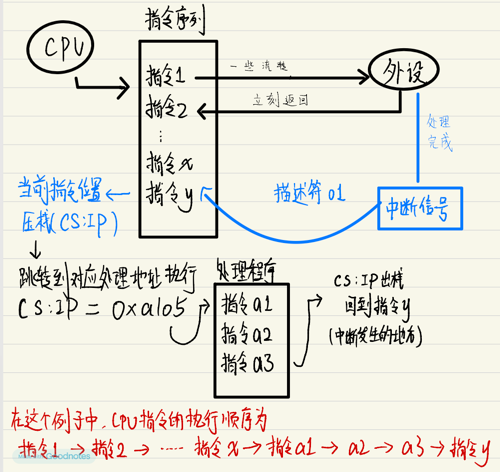 指令序列
CPU
指令1
一些流程
外设
指令2
立刻返回
⋮
指令x
指令y
处理
完成
描述符01
中断信号
当前指令位置
压栈(CS:IP)
跳转到对应处理地址执行
CS:IP = 0xa105
处理程序
指令a1
指令a2
指令a3
CS:IP出栈
回到指令y
(中断发生的地方)
在这个例子中，CPU指令的执行顺序为
指令1 → 指令2 → ····· 指令x → 指令a1 → a2 → a3 → 指令y
Goodnotes